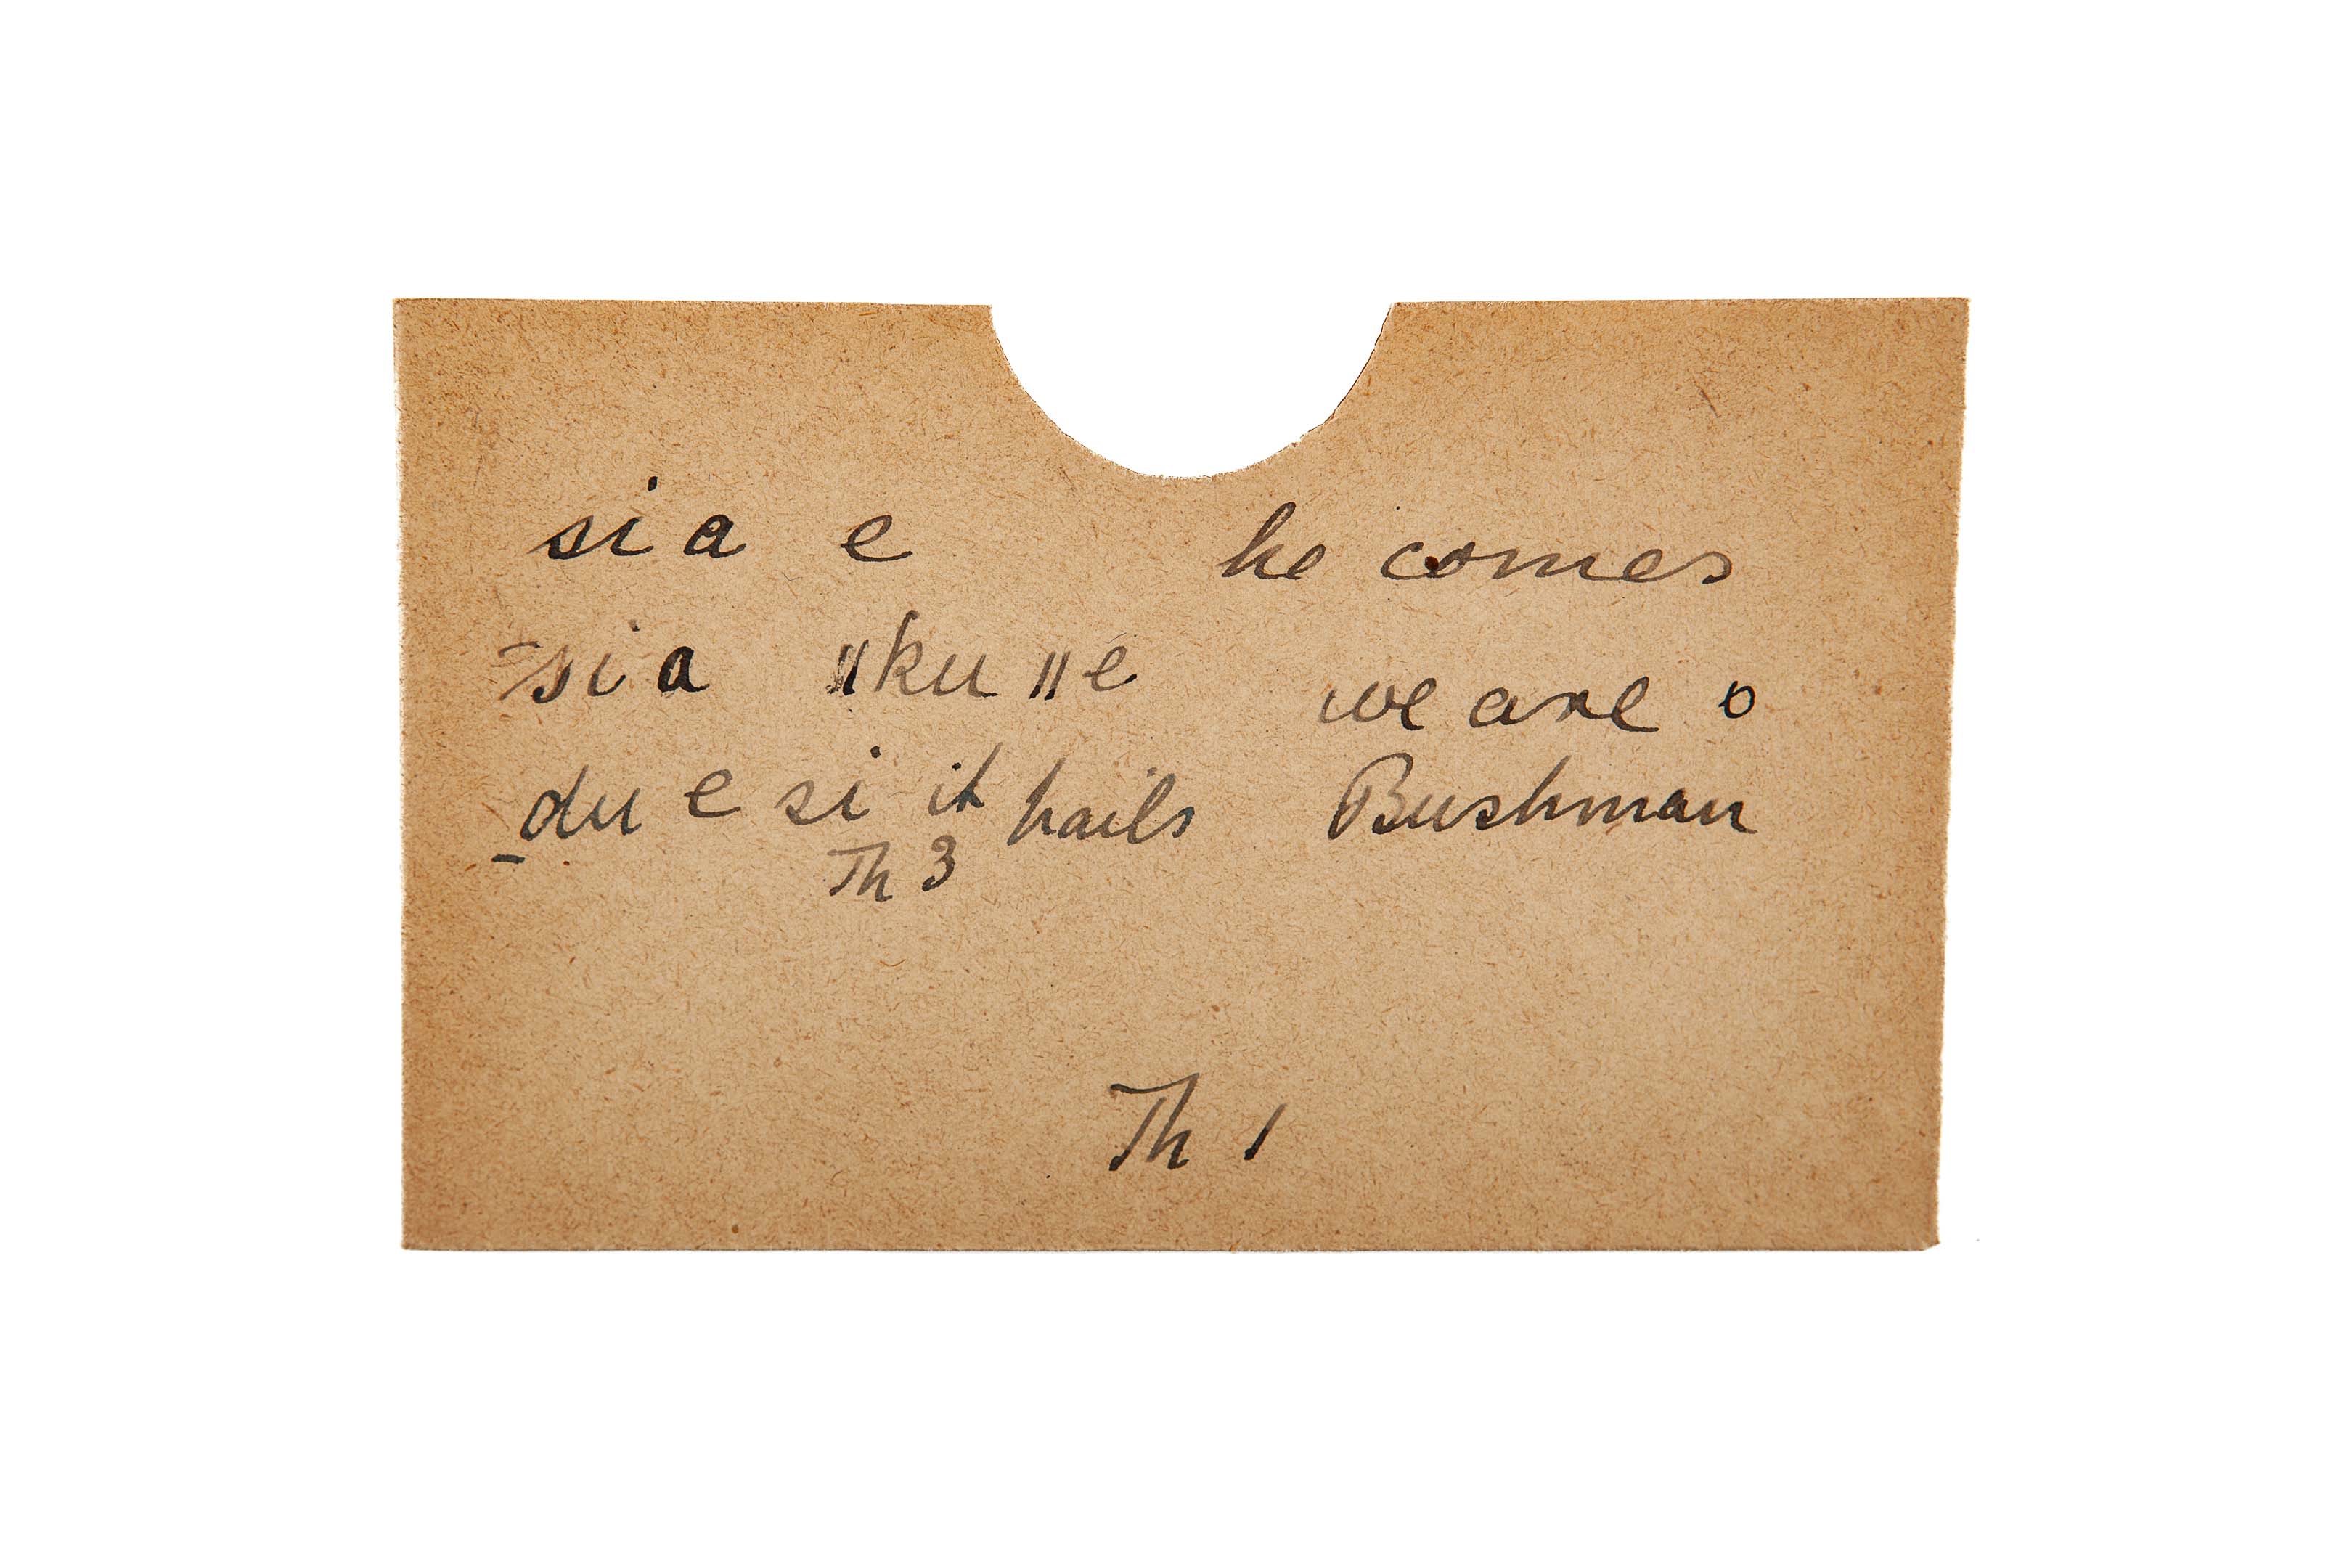 sia e he comes
sia ǁku ǁe we are o
du e si it hails Bushman
Th 3
Th 1